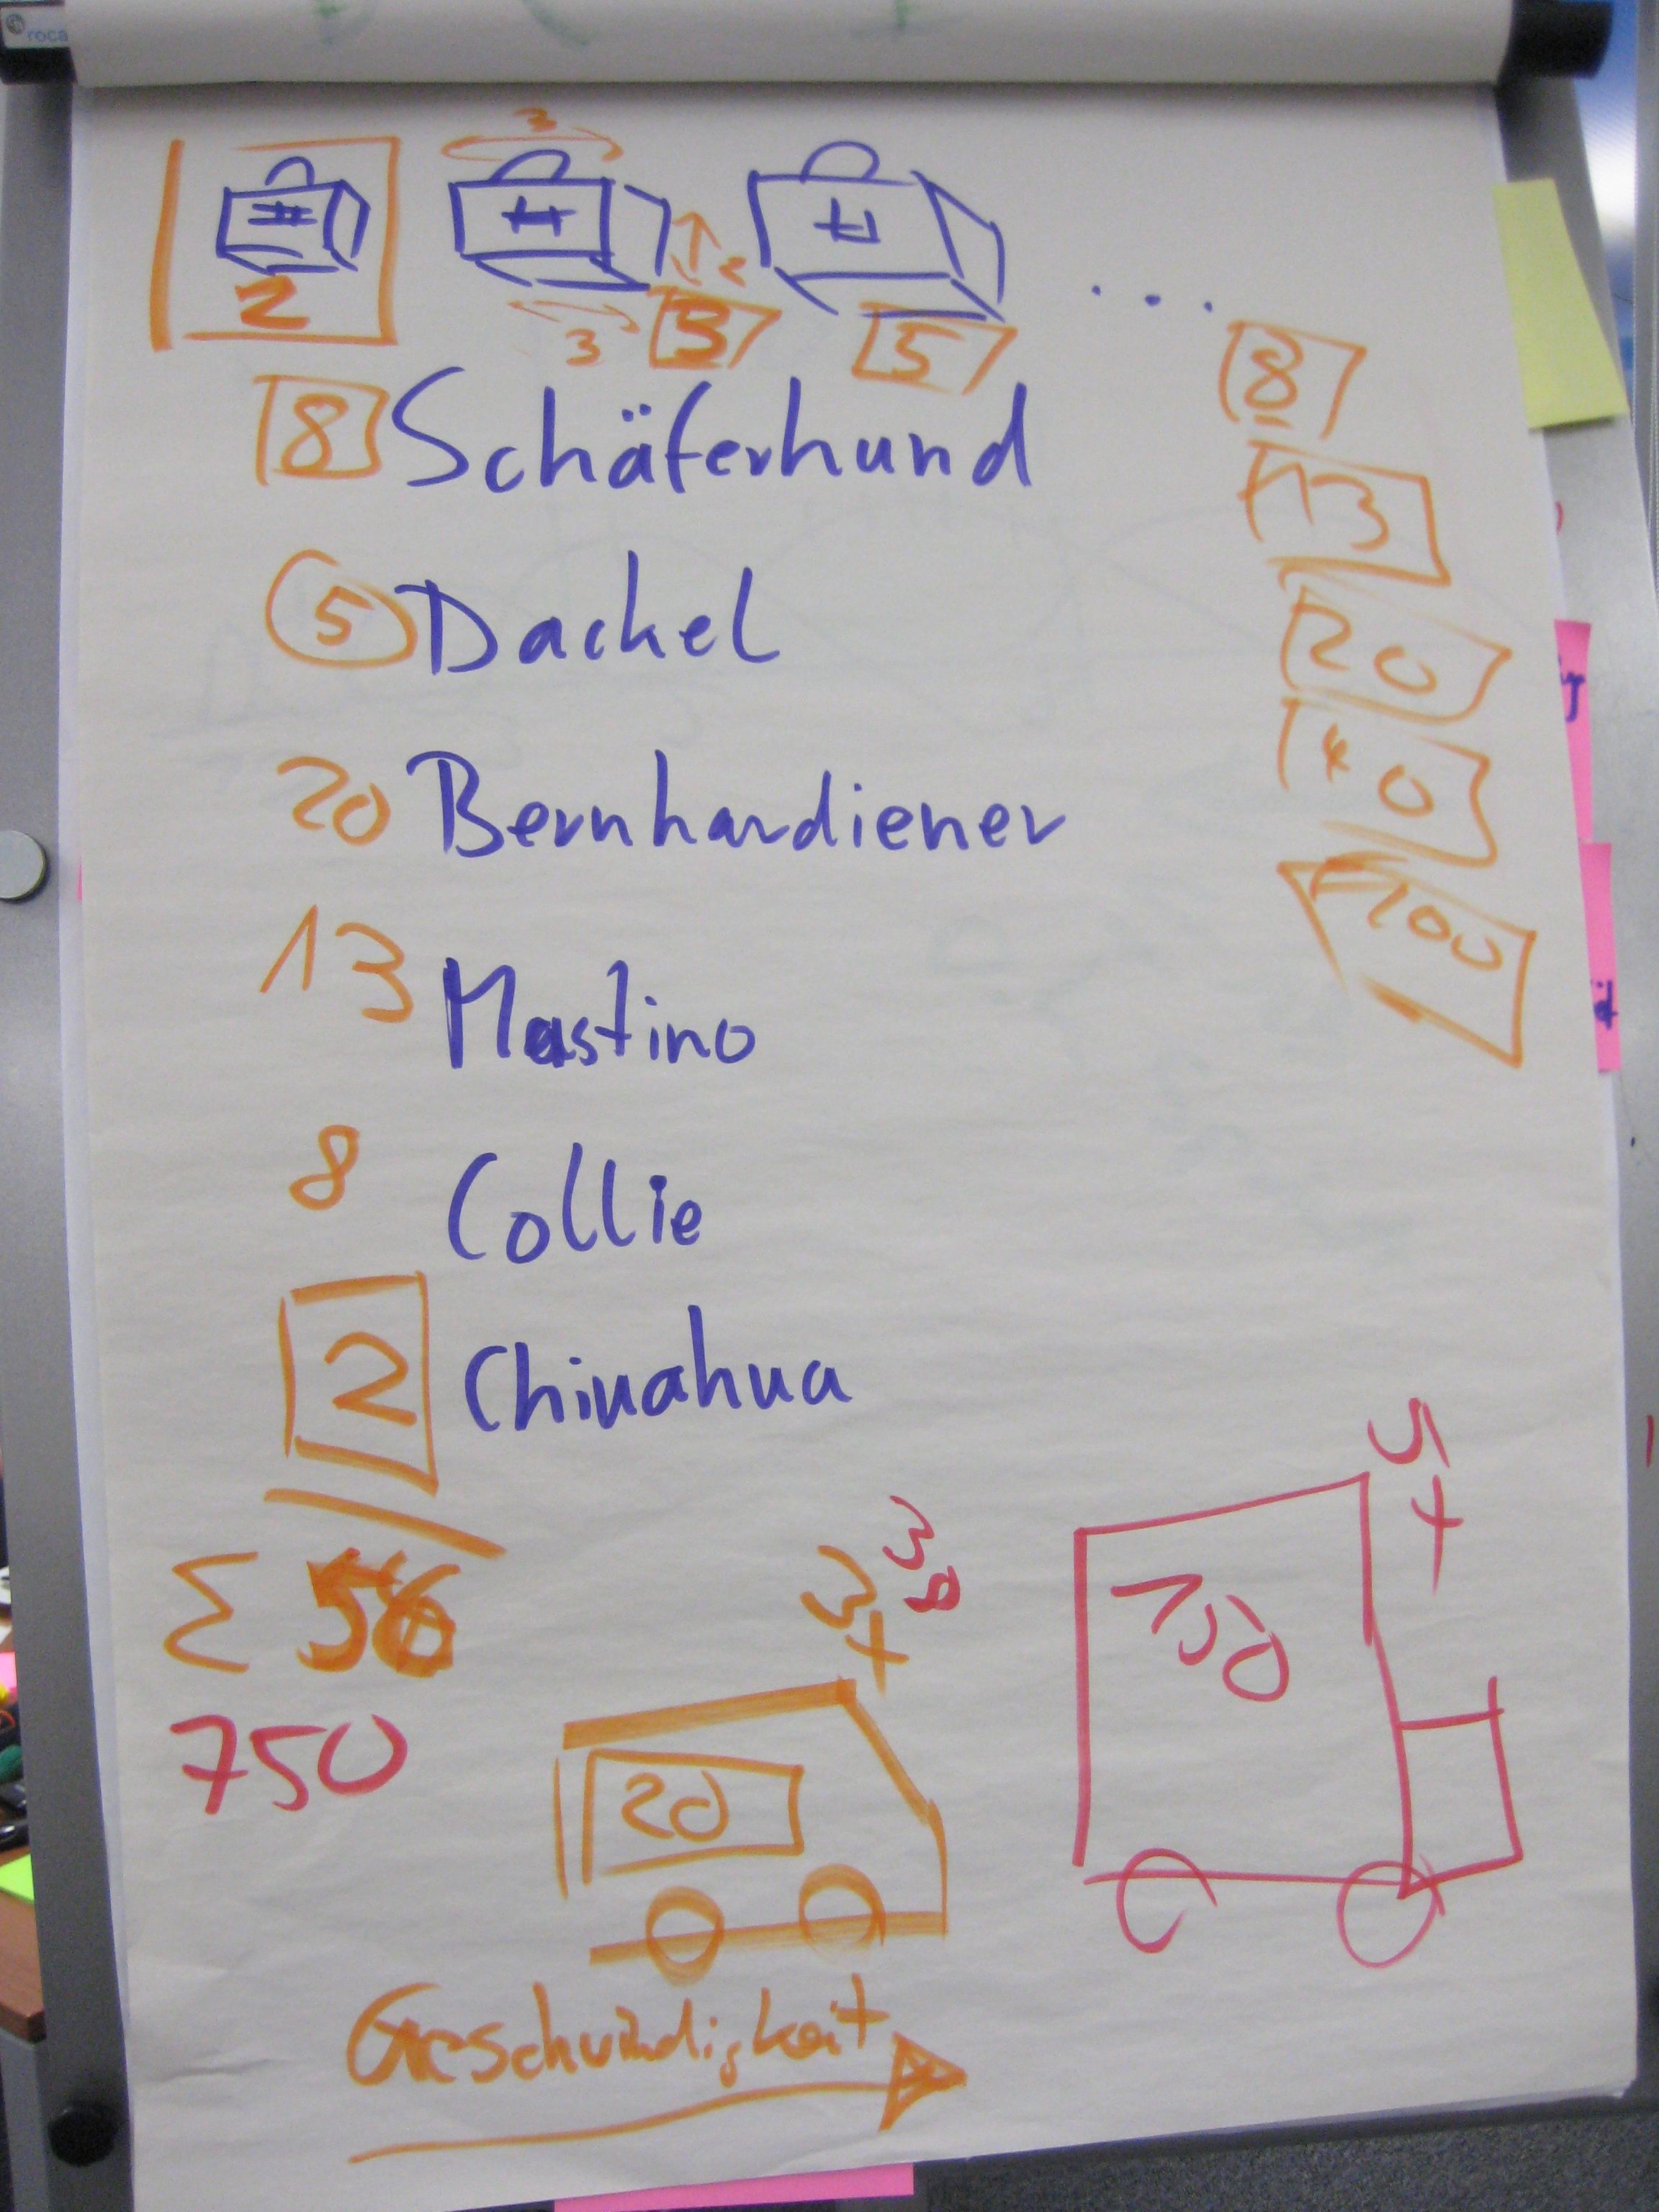 roca
3
2
2
3
3
5
...
8
13
20
40
100
8 Schäferhund
5 Dackel
20 Bernhardiener
13 Mastino
8 Collie
2 Chiuahua
Σ 56
750
38
3t
20
5t
150
Geschwindigkeit